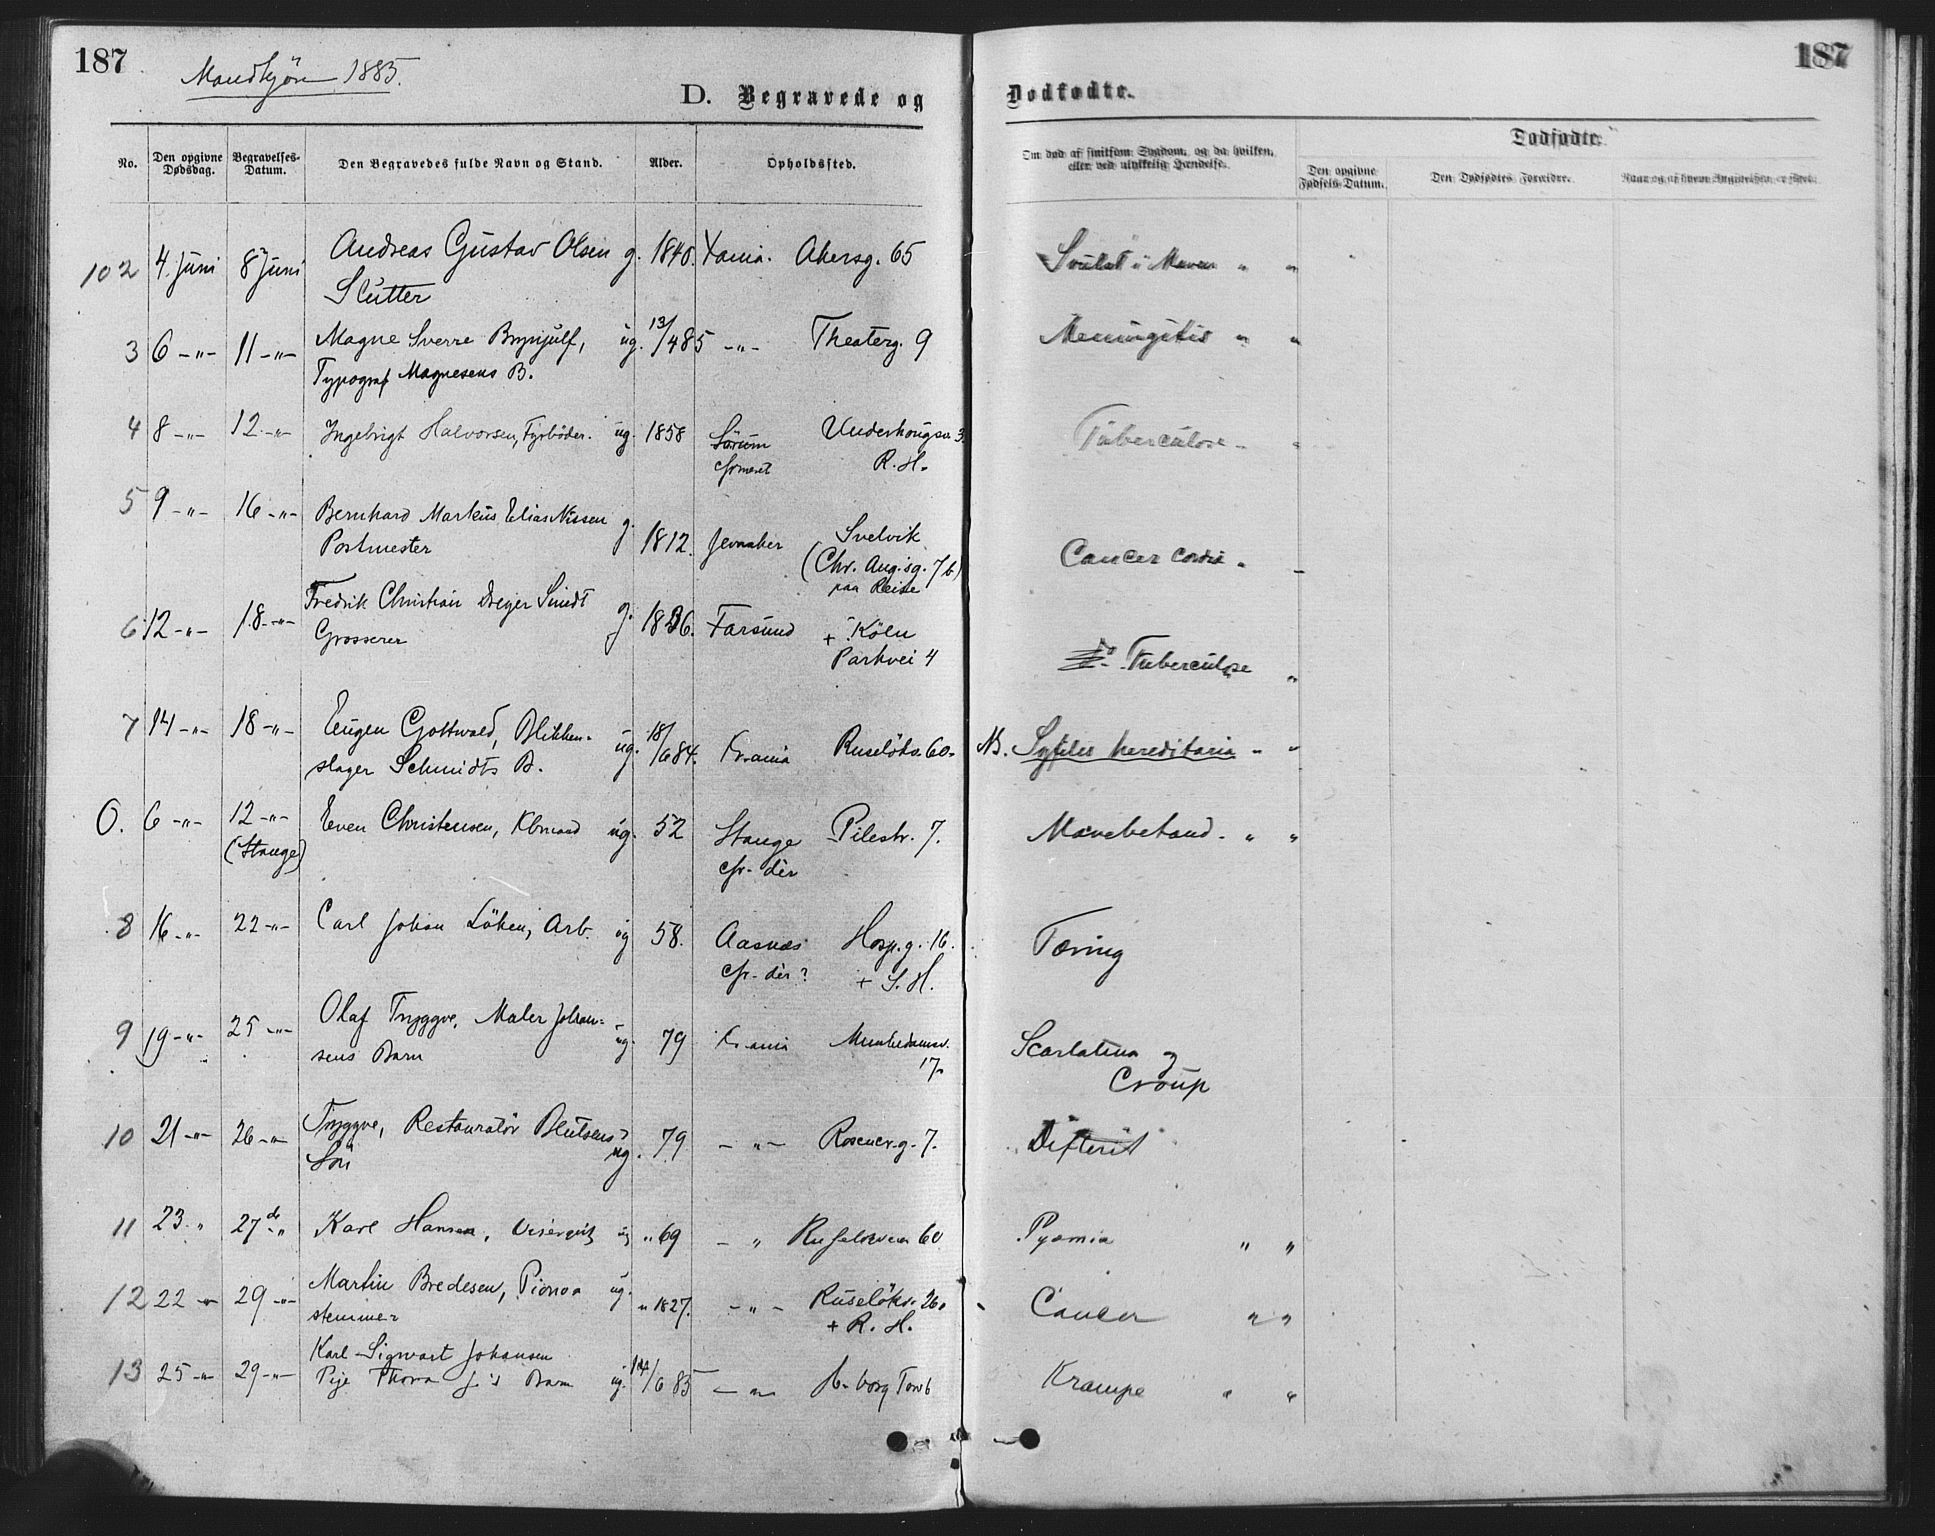 187
Mandkjøn 1885.
D. Begravede og
No. Den opgivne Dødsdag. Begravelses-Datum. Den Begravedes fulde Navn og Stand. Alder. Opholdssted.
102 4. Juni 8 Juni Andreas Gustav Olsen g. 1840. Xania. Akersg. 65
Slutter
3 6 -"- 11 -"- Magne Sverre Brynjulf, ug. 13/4 85 -"- Theaterg. 9
Typograf Magnesens B.
4 8 -"- 12 -"- Ingebrigt Halvorsen, Fyrbøder. ug. 1858 Sørum Underhaugsv. 3.
R. H.
5 9 -"- 16 -"- Bernhard Markus Elias Nissen g. 1812. Jevnaker Svelvik
Postmester (Chr. Aug.sg. 7b)
paa Reise
6 12 -"- 18 -"- Fredrik Christian Dreyer Smidt g. 1836. Farsund + Köln
Grosserer Parkvei 4
7 14 -"- 18 -"- Eugen Gottwald, Blikken- ug. 18/6 84. Krania Ruseløkv. 60.
slager Schmidts B.
0. 6 -"- 12 -"- Even Christensen, Kbmand ug. 52 Stange Pilestr. 7.
(Stange) cfr. dèr
8 16 -"- 22 -"- Carl Johan Løken, Arb. ug 58. Aasnæs Hosp.g. 16.
cfr. dèr? + S. H.
9 19 -"- 25 -"- Olaf Tryggve, Maler Johan- ug. 79 Krania Munkedamsv.
sens Barn 17.
10 21 -"- 26 -"- Tryggve, Restauratør ug. 79. -"- Rosencr.g. 7.
Sön
11 23. " 27 " Karl Hansen, ug " 69 - "
12 22 -"- 29 -"- Martin Bredesen, Piano ug. " 1827. -"- Ruseløkv. 26.
stemmer + R. H.
13 25 -"- 29 -"- Karl Sigwart Johansen
Pige Thora J's Barn ug. 14/6 85 -"-
187
Dødfødte.
Om død af smitsom Sygdom, og da hvilken, eller ved ulykkelig Hændelse. Dødfødte.
Den opgivne Fødsels-Datum. Den Dødfødtes Forældre. Naar og af hvem Angivelsen er skeet.
Svulst i Maven " "
Meningitis " "
Tuberculose - "
Cancer cordis " -
Tuberculose "
NB. Syfilis hereditaria - "
Mavebetænd. " "
Tæring
Scarlatina og
Croup
Difterit
Pyæmia " "
Cancer " "
Krampe " "